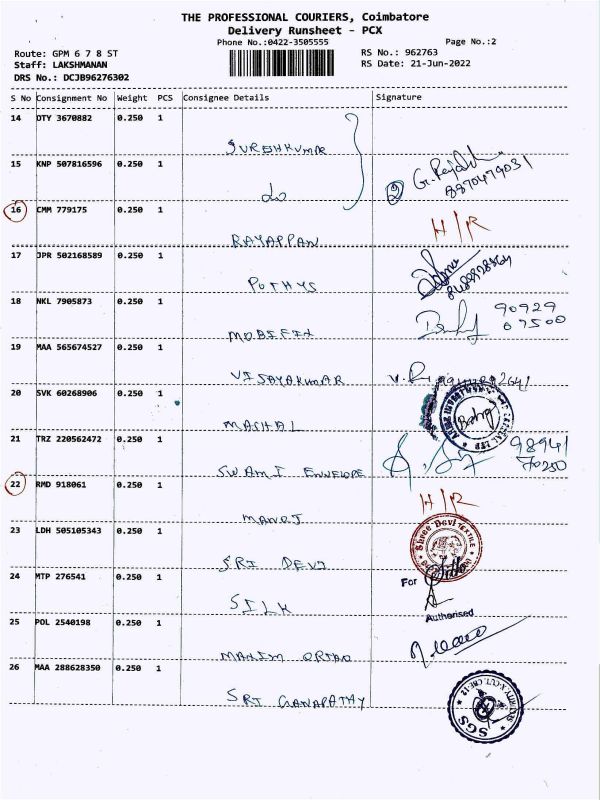 THE PROFESSIONAL COURIERS, Coimbatore
Delivery Runsheet - PCX
Phone No.:0422-3505555
Page No.:2
Route: GPM 6 7 8 ST
RS No.: 962763
Staff: LAKSHMANAN
RS Date: 21-Jun-2022
DRS No.: DCJB96276302
S No Consignment No Weight PCS Consignee Details Signature
14 OTY 3670882 0.250 1
SURESHKUMAR
15 KNP 507816596 0.250 1
do
2 G. 8870479031
16 CMM 779175 0.250 1
H/R
RAYAPPAN
17 JPR 502168589 0.250 1
POTHYS
18 NKL 7905873 0.250 1
90929
07500
MOBIFIX
19 MAA 565674527 0.250 1
VIJAYAKUMAR
20 SVK 60268906 0.250 1
MASHAL
21 TRZ 220562472 0.250 1
98941
70250
SWAMI ENVELOPE
22 RMD 918061 0.250 1
H/R
MANOJ
23 LDH 505105343 0.250 1
Shree Devi TEXTILE
SRI DEVI
24 MTP 276541 0.250 1
For
SILK
Authorised
25 POL 2540198 0.250 1
MAHIM ORTHO
26 MAA 288628350 0.250 1
SRI GANAPATHY
SGS